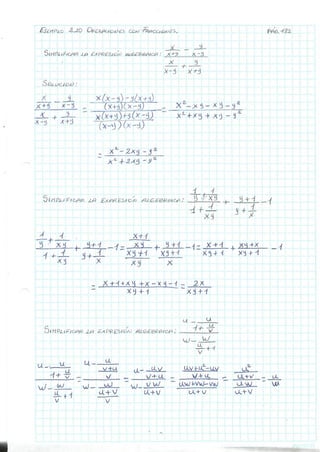 EJEMPLO 2.20 OPERACIONES CON FRACCIONES. PÁG. 132
SIMPLIFICAR LA EXPRESIÓN ALGEBRAICA: (x/(x+y) - y/(x-y)) / (x/(x-y) + y/(x+y))
SOLUCIÓN:
(x/(x+y) - y/(x-y)) / (x/(x-y) + y/(x+y)) = ((x(x-y)-y(x+y))/((x+y)(x-y))) / ((x(x+y)+y(x-y))/((x-y)(x+y))) = (x²-xy-xy-y²)/(x²+xy+xy-y²)
= (x²-2xy-y²)/(x²+2xy-y²)
SIMPLIFICAR LA EXPRESIÓN ALGEBRAICA: (1/y + 1/xy)/(1 + 1/xy) + (y+1)/(y + 1/x) - 1
(1/y + 1/xy)/(1 + 1/xy) + (y+1)/(y + 1/x) - 1 = ((x+1)/xy)/((xy+1)/xy) + (y+1)/((xy+1)/x) - 1 = (x+1)/(xy+1) + (xy+x)/(xy+1) - 1
= (x+1+xy+x-xy-1)/(xy+1) = 2x/(xy+1)
SIMPLIFICAR LA EXPRESIÓN ALGEBRAICA: (u - u/(1 + u/v))/(w - w/(u/v + 1))
(u - u/(1 + u/v))/(w - w/(u/v + 1)) = (u - u/((v+u)/v))/(w - w/((u+v)/v)) = (u - uv/(v+u))/(w - vw/(u+v)) = ((uv+u²-uv)/(v+u))/((uw+vw-vw)/(u+v)) = (u²/(u+v))/(uw/(u+v)) = u/w